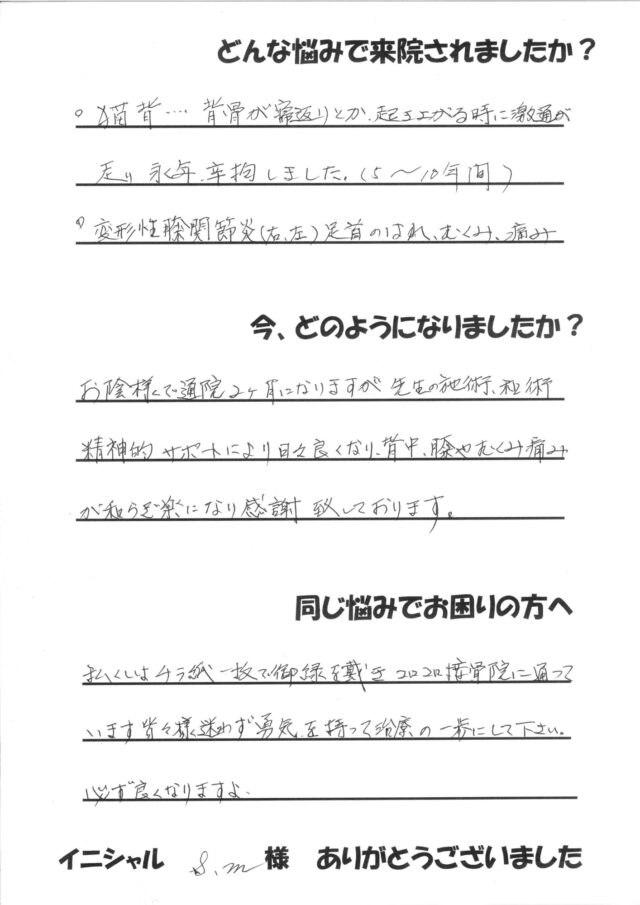 どんな悩みで来院されましたか？
○猫背… 背骨が寝返りとか、起き上がる時に激通が
走り 永年、辛抱しました。(5〜10年間)
変形性膝関節炎(右、左)足首のはれ、むくみ、痛み
今、どのようになりましたか？
お陰様で通院2ヶ月になりますが 先生の施術、
精神的サポートにより日々良くなり、背中、膝やむくみ痛み
が和らぎ楽になり感謝 致しております。
同じ悩みでお困りの方へ
私くしはチラ紙一枚で御縁を戴き コロコロ接骨院に通って
います 皆々様迷わず勇気を持って治療の一歩にして下さい。
必ず良くなりますよ
イニシャル S.m 様 ありがとうございました